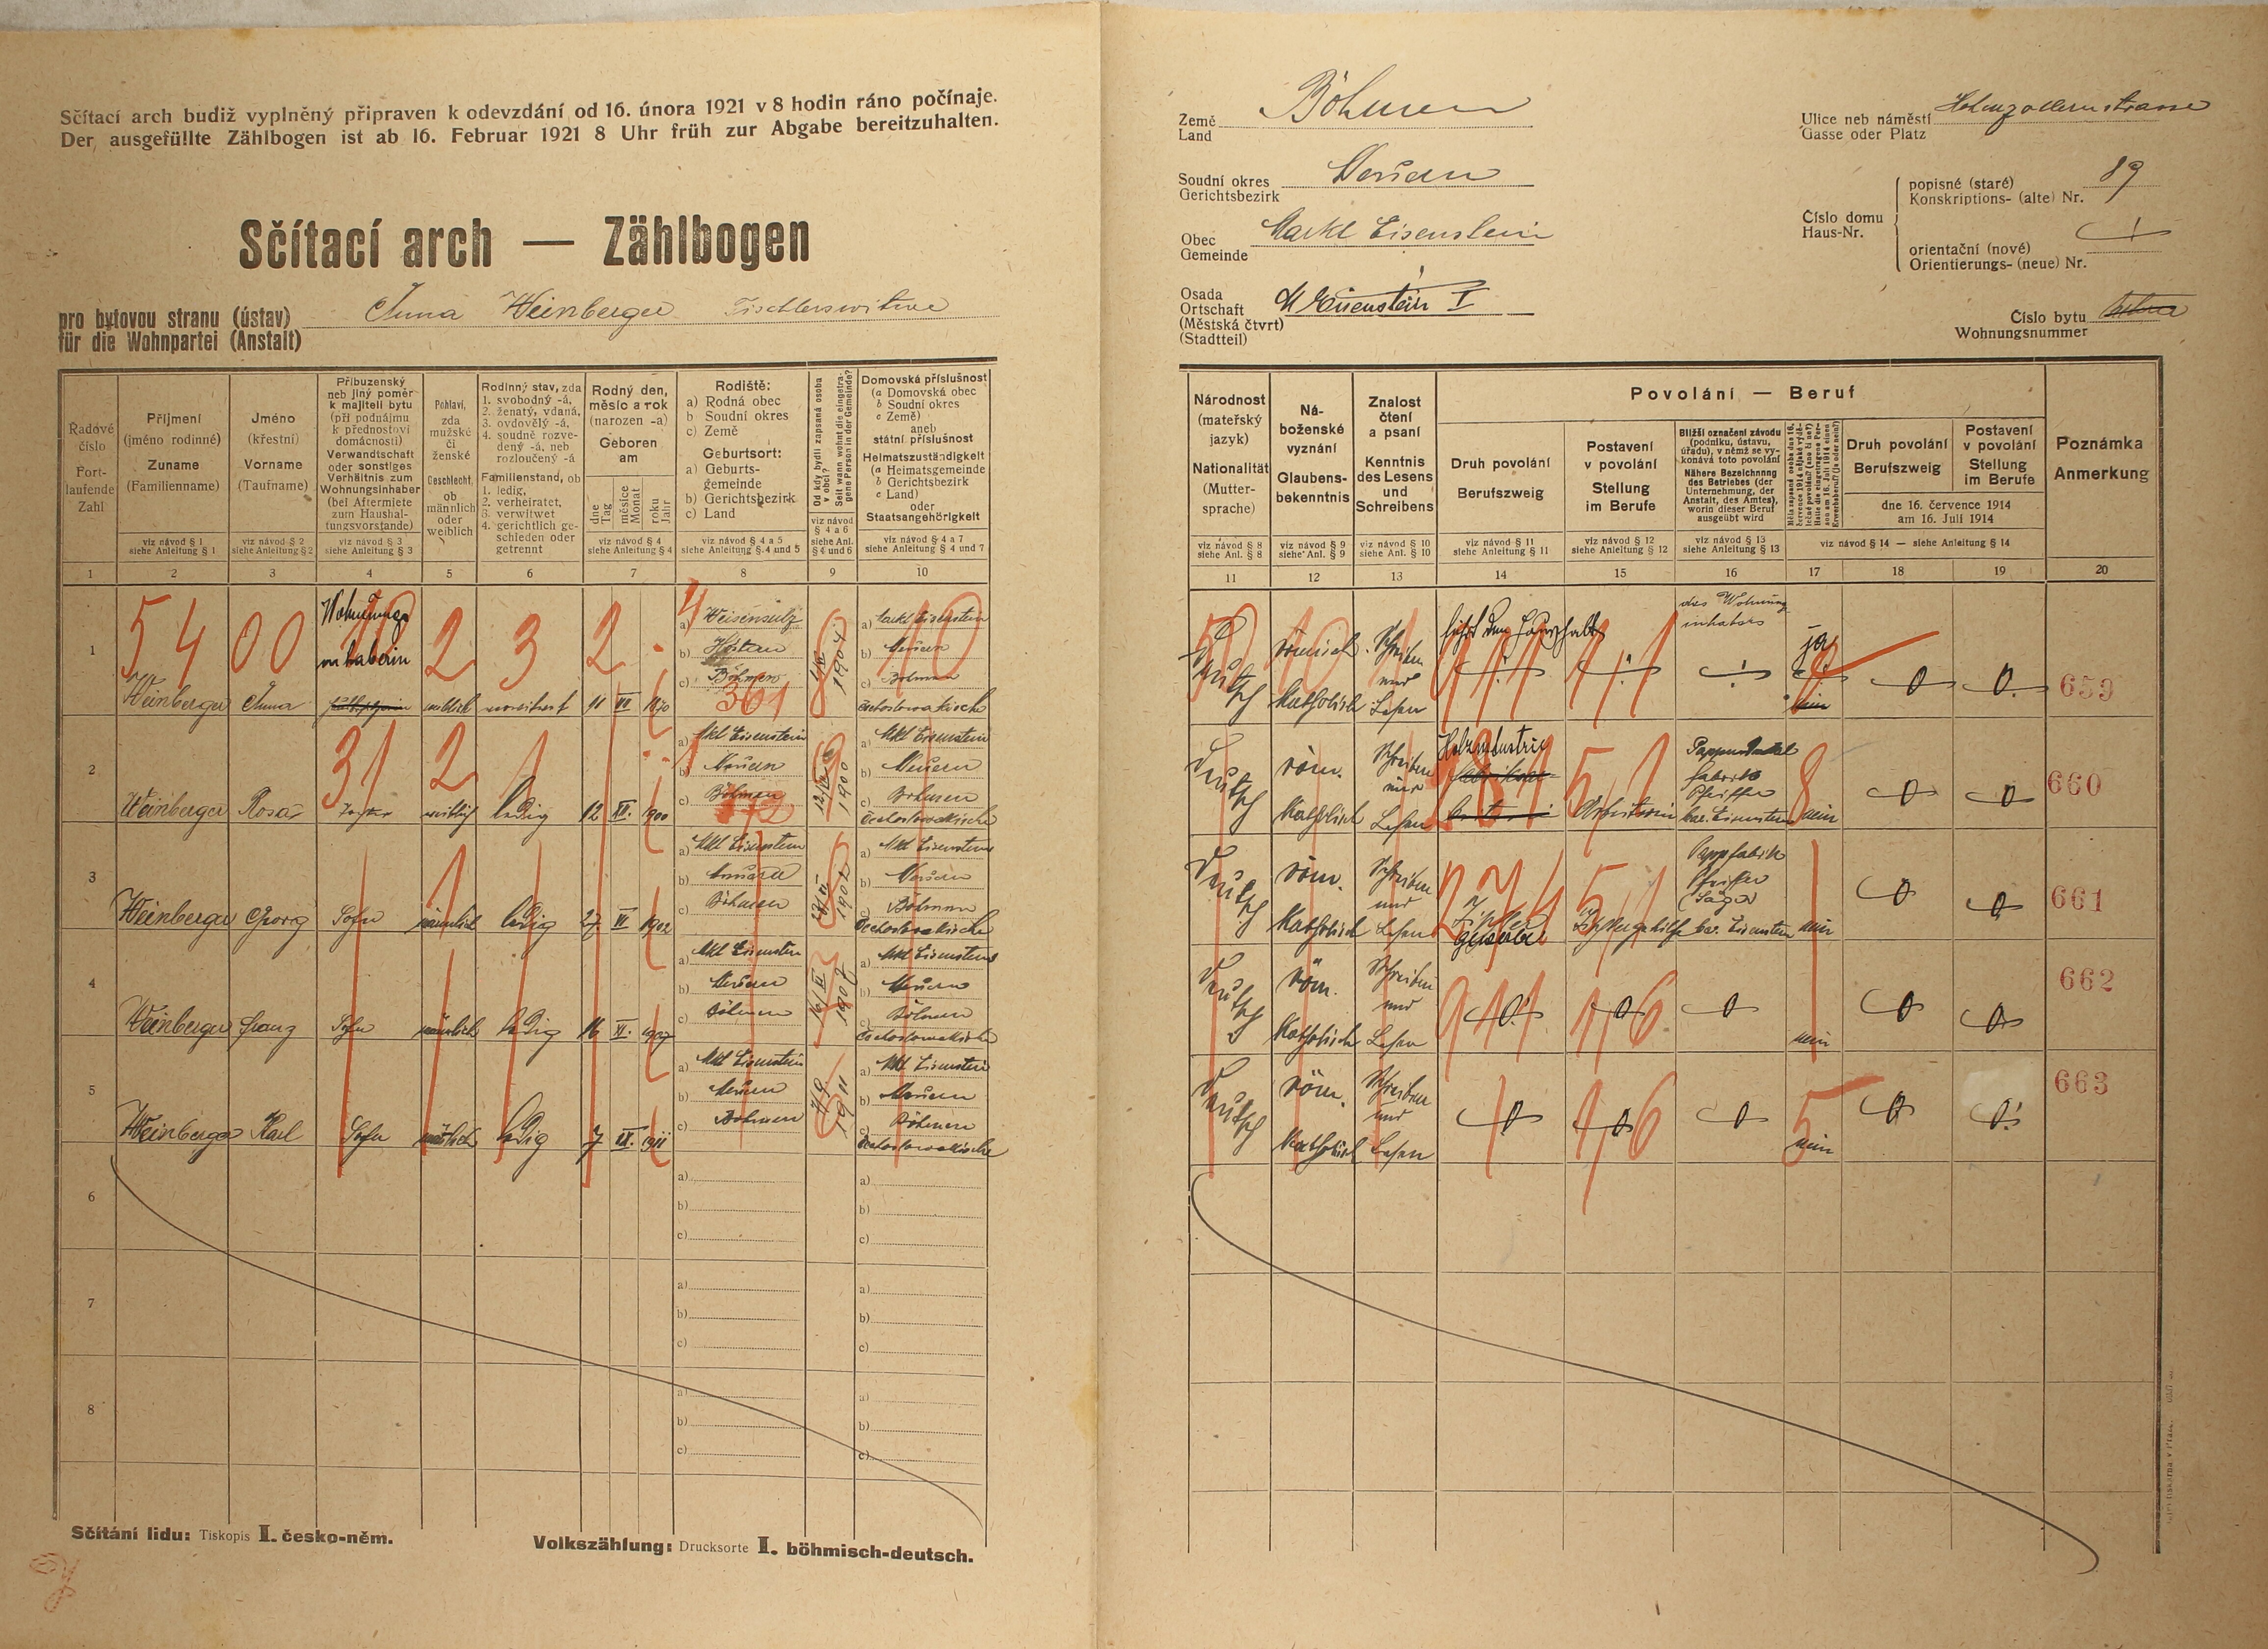 Sčítací arch budiž vyplněný připraven k odevzdání od 16. února 1921 v 8 hodin ráno počínaje.
Der ausgefüllte Zählbogen ist ab 16. Februar 1921 8 Uhr früh zur Abgabe bereitzuhalten.
Sčítací arch — Zählbogen
pro bytovou stranu (ústav)
für die Wohnpartei (Anstalt)
Anna Weinberger Tischlerswitwe
Země
Land
Böhmen
Soudní okres
Gerichtsbezirk
Neuern
Obec
Gemeinde
Markt Eisenstein
Osada
Ortschaft
(Městská čtvrt)
(Stadtteil)
M Eisenstein I
Ulice neb náměstí
Gasse oder Platz
Hohenzollernstrasse
Číslo domu
Haus-Nr.
popisné (staré)
Konskriptions- (alte) Nr.
89
orientační (nové)
Orientierungs- (neue) Nr.
Číslo bytu
Wohnungsnummer
Radové
číslo
Fort-
laufende
Zahl
1
Příjmení
(jméno rodinné)
Zuname
(Familienname)
viz návod § 1
siehe Anleitung § 1
2
Jméno
(křestní)
Vorname
(Taufname)
viz návod § 2
siehe Anleitung § 2
3
Příbuzenský
neb jiný poměr
k majiteli bytu
(při podnájmu
k přednostovi
domácnosti)
Verwandtschaft
oder sonstiges
Verhältnis zum
Wohnungsinhaber
(bei Aftermiete
zum Haushal-
tungsvorstande)
viz návod § 3
siehe Anleitung § 3
4
Pohlaví,
zda
mužské
či
ženské
Geschlecht,
ob
männlich
oder
weiblich
5
Rodinný stav, zda
1. svobodný -á,
2. ženatý, vdaná,
3. ovdovělý -á,
4. soudně rozve-
dený -á, neb
rozloučený -á
Familienstand, ob
1. ledig,
2. verheiratet,
3. verwitwet
4. gerichtlich ge-
schieden oder
getrennt
6
Rodný den,
měsíc a rok
(narozen -a)
Geboren
am
dne
Tag
měsíce
Monat
roku
Jahr
viz návod § 4
siehe Anleitung § 4
7
Rodiště:
a) Rodná obec
b) Soudní okres
c) Země
Geburtsort:
a) Geburts-
gemeinde
b) Gerichtsbezirk
c) Land
viz návod § 4 a 5
siehe Anleitung § 4 und 5
8
Od kdy bydlí zapsaná osoba
v obci?
Seit wann wohnt die eingetra-
gene Person in der Gemeinde?
viz návod
§ 4 a 6
siehe Anl.
§ 4 und 6
9
Domovská příslušnost
(a Domovská obec
b Soudní okres
c Země)
aneb
státní příslušnost
Heimatszuständigkeit
(a Heimatsgemeinde
b Gerichtsbezirk
c Land)
oder
Staatsangehörigkeit
viz návod § 4 a 7
siehe Anleitung § 4 und 7
10
Národnost
(mateřský
jazyk)
Nationalität
(Mutter-
sprache)
viz návod § 8
siehe Anl. § 8
11
Ná-
boženské
vyznání
Glaubens-
bekenntnis
viz návod § 9
siehe Anl. § 9
12
Znalost
čtení
a psaní
Kenntnis
des Lesens
und
Schreibens
viz návod § 10
siehe Anl. § 10
13
Povolání — Beruf
Druh povolání
Berufszweig
viz návod § 11
siehe Anleitung § 11
14
Postavení
v povolání
Stellung
im Berufe
viz návod § 12
siehe Anleitung § 12
15
Bližší označení závodu
(podniku, ústavu,
úřadu), v němž se vy-
konává toto povolání
Nähere Bezeichnung
des Betriebes (der
Unternehmung, der
Anstalt, des Amtes),
worin dieser Beruf
ausgeübt wird
viz návod § 13
siehe Anleitung § 13
16
17
Druh povolání
Berufszweig
Postavení
v povolání
Stellung
im Berufe
dne 16. července 1914
am 16. Juli 1914
viz návod § 14 — siehe Anleitung § 14
18
19
Poznámka
Anmerkung
20
1
5400
Wohnungs
inhaberin
Weinberger Anna weiblich verwitwet 11 VII 1870
2 3 2
a) Weisensulz
b) Hostau
c) Böhmen
361
1904
a) Markt Eisenstein
b) Neuern
c) Böhmen
čechoslowakisch
Deutsch
römisch
Katholisch
Schreiben
und
Lesen
führt den Haushalt
des Wohnung
inhabers
ja
659
2
31 2 1
Weinberger Rosa Tochter weiblich ledig 12 XII. 1900
a) Mkt Eisenstein
b) Neuern
c) Böhmen
1900
a) Mkt Eisenstein
b) Neuern
c) Böhmen
čechoslowakische
Deutsch
röm.
Katholisch
Schreiben
und
Lesen
Holzindustrie
Arbeiterin
fabrik
Pfeiffer
bar. Eisenstein
nein
660
3
Weinberger Georg Sohn männlich ledig 27 VI 1902
a) Mkt Eisenstein
b) Neuern
c) Böhmen
1902
a) Mkt Eisenstein
b) Neuern
c) Böhmen
čechoslowakische
Deutsch
röm.
Katholisch
Schreiben
und
Lesen
274 51
Tischler
gewerbe
Tischlergehilfe
Pappfabrik
Pfeiffer
(Säge)
bar. Eisenstein
nein
661
4
Weinberger Franz Sohn männlich ledig 16 VI. 1907
a) Mkt Eisenstein
b) Neuern
c) Böhmen
16/VI 1907
a) Mkt Eisenstein
b) Neuern
c) Böhmen
čechoslowakische
Deutsch
röm.
Katholisch
Schreiben
und
Lesen
911 1,6
nein
662
5
Weinberger Karl Sohn männlich ledig 7 IX. 1911
a) Mkt Eisenstein
b) Neuern
c) Böhmen
1911
a) Mkt Eisenstein
b) Neuern
c) Böhmen
čechoslowakische
Deutsch
röm.
Katholisch
Schreiben
und
Lesen
1,6
5
nein
663
6
a)
b)
c)
a)
b)
c)
7
a)
b)
c)
a)
b)
c)
8
a)
b)
c)
a)
b)
c)
Sčítání lidu: Tiskopis I. česko-něm.
Volkszählung: Drucksorte I. böhmisch-deutsch.